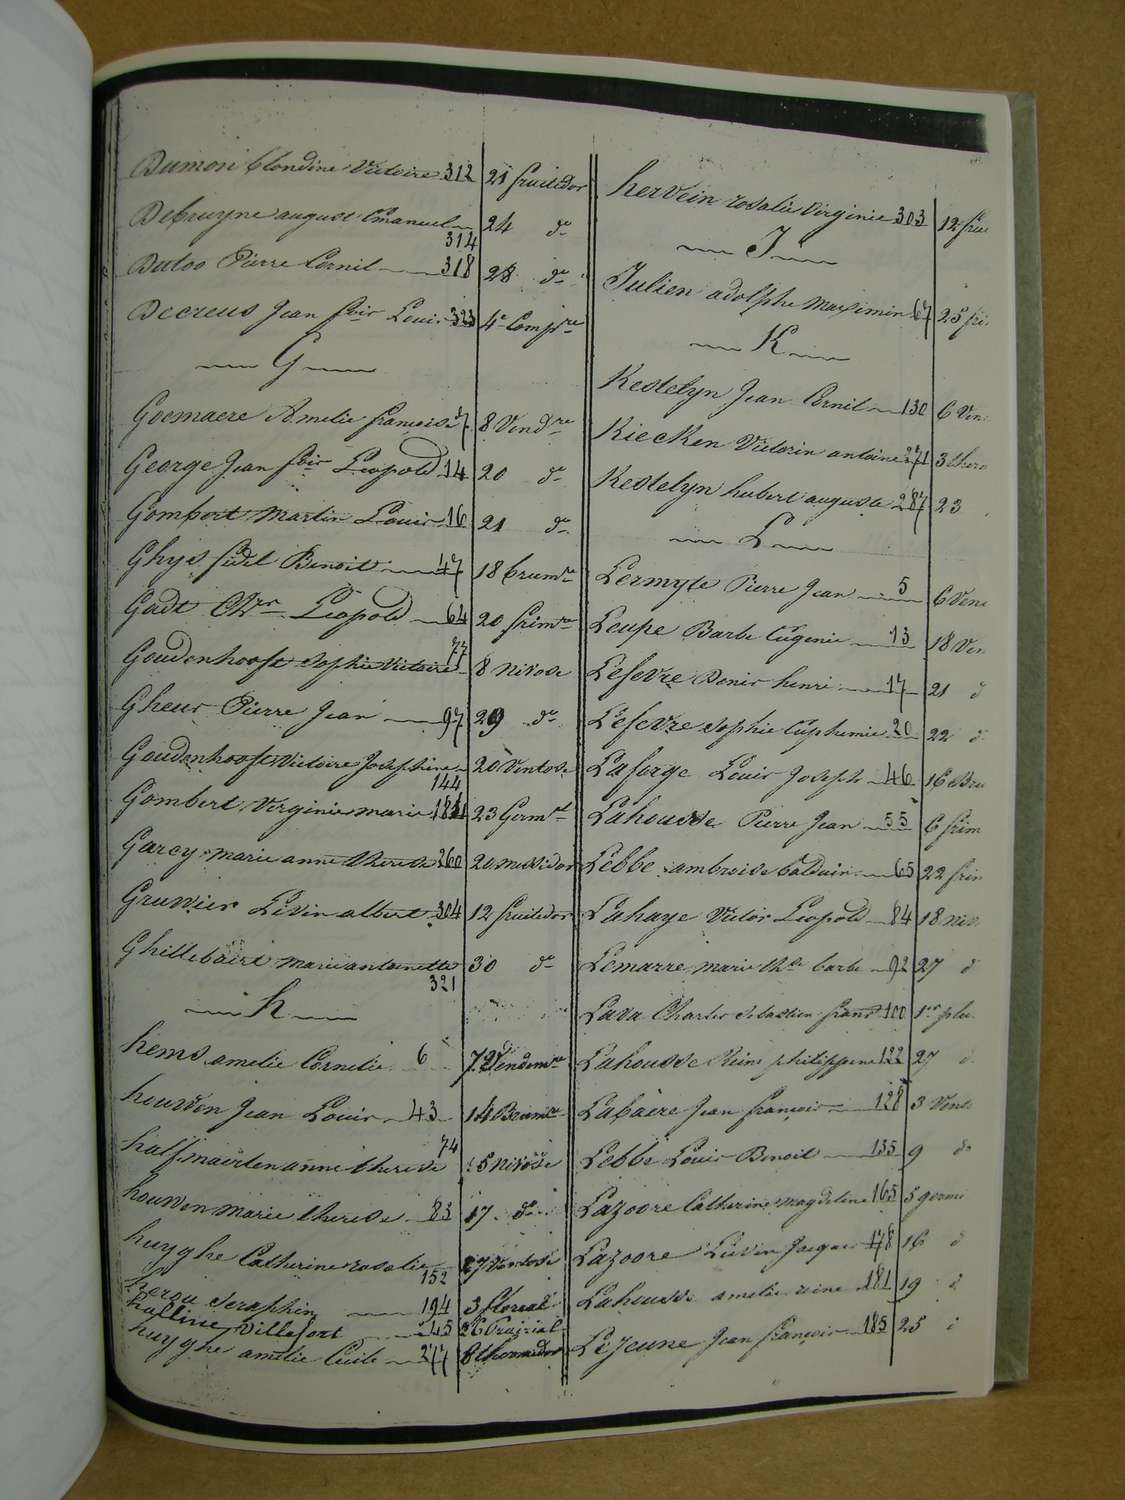 Dumon blondine Victoire 312 21 fruitidor
Debruyne august Emanuel 24 do
314
Dutoo Pierre Cornil 318 28 do
Decreus Jean fois Louis 323 4e Compre
G
Goemaere Amelie françoise 7 8 Vendre
George Jean fois Leopold 14 20 do
Gombert Martin Louis 16 21 do
Ghys fidel Benoit 47 18 brumre
Gadt Leopold 64 20 frimre
77
Goudenhooft Sophie Victoire 8 Nivose
Gheus Pierre Jean 97 29 do
Goudenhooft Victoire Josephine 20 Ventose
144
Gombert Virginie marie 184 23 Germal
Garcy marie anne therese 260 20 messidor
Gruwier Livin albert 304 12 fruitidor
Ghillebaert marie antoinette 30 do
321
h
hems amelie Cornelie 6 7 Vendemre
houwen Jean Louis 43 14 Brumre
74
halfmaerten anne therese 5 Nivose
houwen marie therese 83 17 do
huyghe Catherine rosalie 27 Ventose
152
Seraphin 194 3 floreal
Villefort 245 26 Prairial
huyghe amelie Cecile 277 8 thermidor
hervein rosalie Virginie 303 12 fru
J
Julien adolphe maximin 67 25 fri
K
Kestelyn Jean Cornil 130 6 Ven
Kiecken Victorin antoine 271 3 therm
Kestelyn hubert auguste 287 23
L
Lermyte Pierre Jean 5 6 Vend
Leupe Barbe Eugenie 13 18 Ven
Lefevre Denis henri 17 21 d
Lefevre Sophie Euphemie 20 22 d
Laforge Louis Joseph 46 16 Bru
Lahousse Pierre Jean 55 6 frim
Lebbe ambroise balduin 65 22 frim
Lahaye Victor Leopold 84 18 niv
Lemarre marie thse barbe 92 27 d
Lava Charles Sebastien frans 100 1er plu
Lahousse philippine 122 27 d
Labaere Jean françois 128 3 Vento
Lebbe Louis Benoit 135 9 do
Lazoore Catherine magdeline 165 5 germi
Lazoore Livin Jacques 178 16 d
Lahousse amelie reine 181 19 d
Lejeune Jean françois 185 25 d